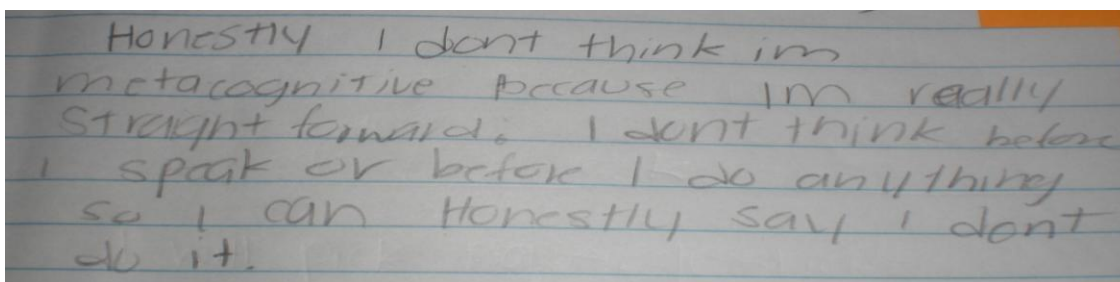 Honestly I dont think im
metacognitive because Im really
Straight forward. I dont think before
I speak or before I do anything
so I can Honestly say I dont
do it.